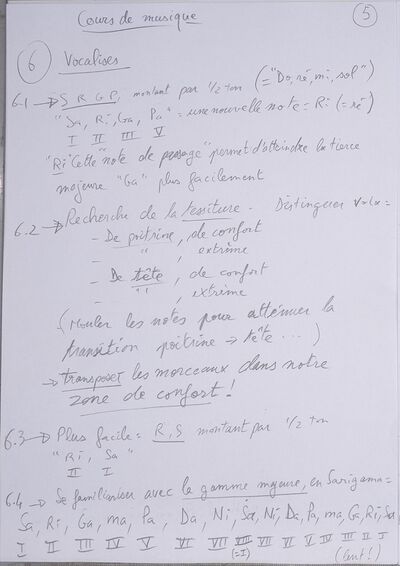 Cours de musique
5
6 Vocalises
6.1 → S R G P, montant par 1/2 ton (= "Do, ré, mi, sol")
"Sa, Ri, Ga, Pa" = une nouvelle note = Ri (= ré)
I II III V
"Ri" Cette "note de passage" permet d'atteindre la tierce
majeure "Ga" plus facilement
6.2 → Recherche de la tessiture. Distinguer voix =
- De poitrine, de confort
- " , extrême
- De tête, de confort
- " , extrême
(Mouler les notes pour atténuer la
transition poitrine → tête ...)
→ transposer les morceaux dans notre
zone de confort !
6.3 → Plus facile = R, S montant par 1/2 ton
"Ri, Sa"
II I
6.4 → Se familiariser avec la gamme majeure, en Sarigama =
Sa, Ri, Ga, ma, Pa, Da, Ni, Sa, Ni, Da, Pa, ma, Ga, Ri, Sa
I II III IV V VI VII VIII VII VI V IV III II I
(=I) (lent !)